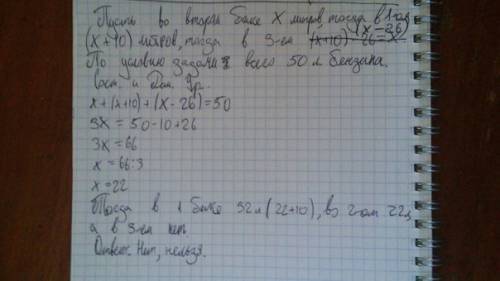 Пусть во втором баке x литров, тогда в 1-ом
(x+10) литров, тогда в 3-ем (x+10)-26=x (x-26)
По условию задачи всего 50 л бензина.
Сост. и реш. Ур.
x+(x+10)+(x-26)=50
3x = 50-10+26
3x = 66
x = 66:3
x = 22
Тогда в 1 баке 32 л (22+10), во 2-ом 22,
а в 3-ем нет
Ответ: Нет, нельзя.